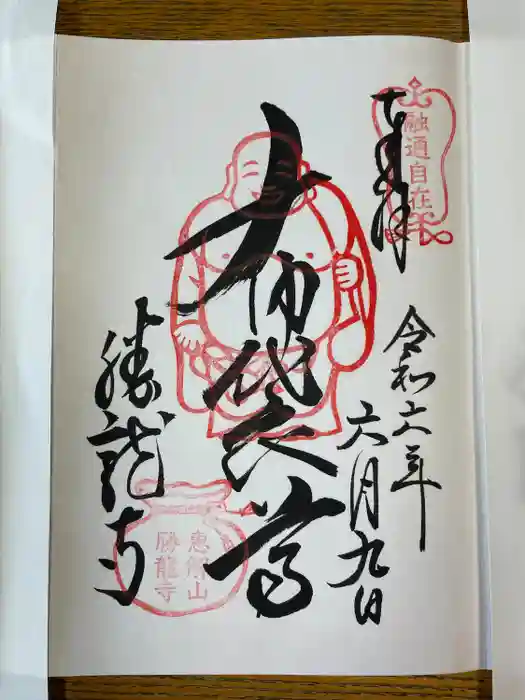 奉拝
融通自在
令和六年
六月九日
布袋尊
勝龍寺
恵解山
勝龍寺